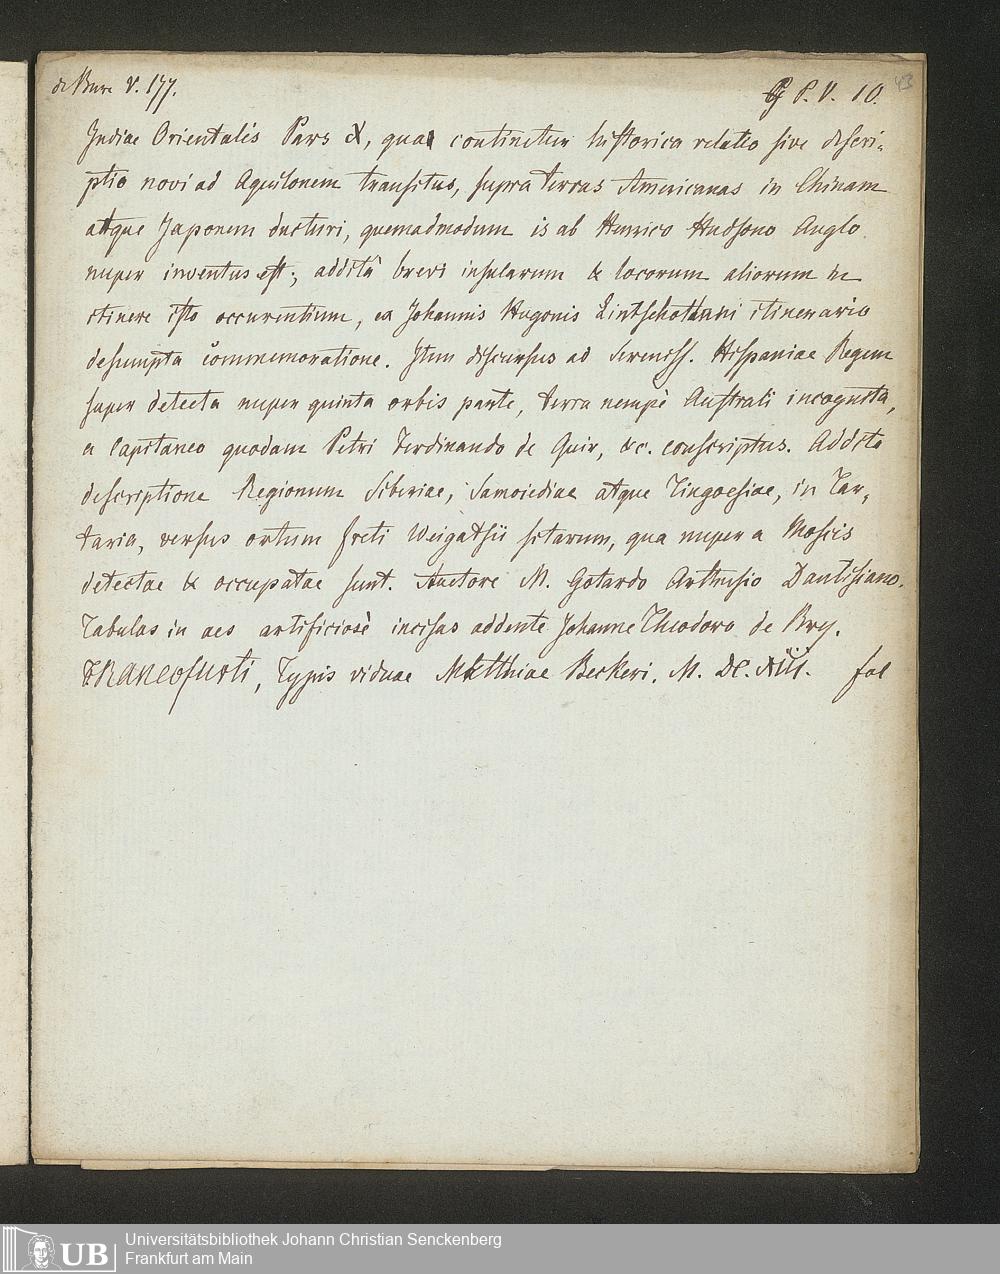 de Bure V. 177.
P. V. 10. 43
Indiae Orientalis Pars X, qua continetur historica relatio sive descri-
ptio novi ad Aquilonem transitus, supra terras Americanas in Chinam
atque Japonem ducturi, quemadmodum is ab Henrico Hudsono Anglo
nuper inventus est; additâ brevi insularum & locorum aliorum in
itinere isto occurentium, ex Johannis Hugonis Lintschottani itinerario
desumpta commemoratione. Item discursus ad Sereniss. Hispaniae Regem
super detecta nuper quinta orbis parte, terra nempè Australi incognita,
a Capitaneo quodam Petri Ferdinando de Quir, &c. conscriptus. Addita
descriptione Regionum Siberiae, Samoiediae atque Tingoesiae, in Tar-
taria, versus ortum freti Weigatsii sitarum, qua nuper a Moscis
detectae & occupatae sunt. Auctore M. Gotardo Arthusio Dantisiano.
Tabulas in aes artificiosè incisas addente Johanne Theodoro de Bry.
FRANCOfurti, Typis viduae Matthiae Beckeri. M. DC. XIII. fol
UB
Universitätsbibliothek Johann Christian Senckenberg
Frankfurt am Main